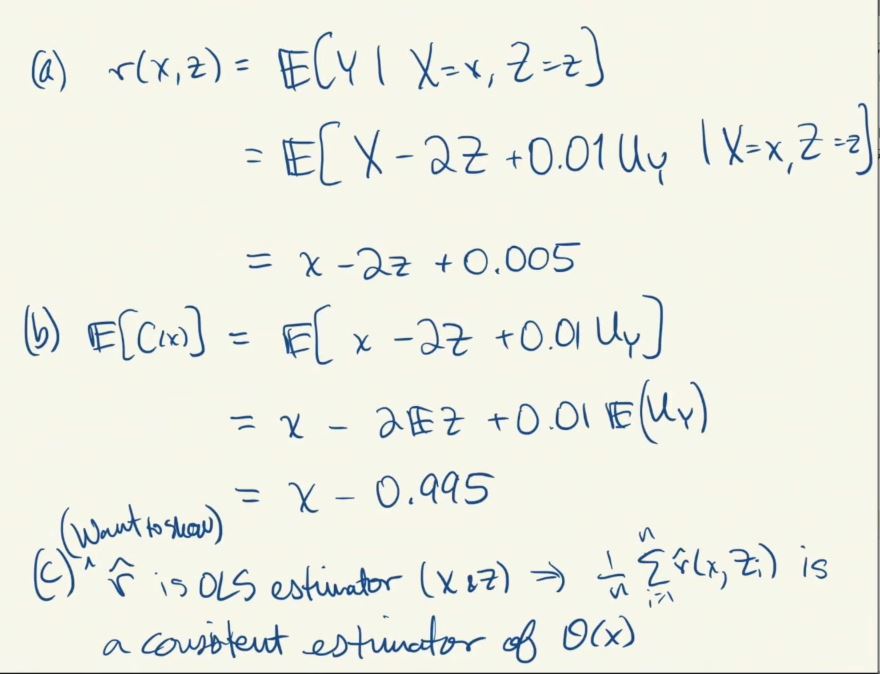 (a) r(x,z) = 𝔼[Y | X=x, Z=z]
= 𝔼[X - 2Z + 0.01 U_Y | X=x, Z=z]
= x - 2z + 0.005
(b) 𝔼[C(x)] = 𝔼[x - 2Z + 0.01 U_Y]
= x - 2𝔼Z + 0.01 𝔼(U_Y)
= x - 0.995
(Want to show)
(c) ^ r̂ is OLS estimator (X & Z) ⇒ 1/n ∑_{i=1}^{n} r̂(x, Z_i) is
a consistent estimator of θ(x)